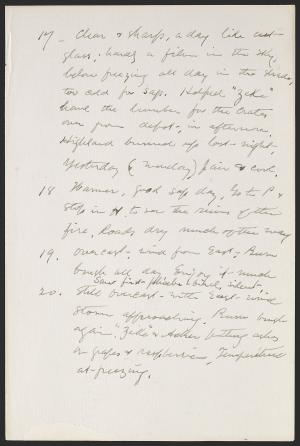 17 - Clear & sharp, a day like cut-
glass, hardly a film in the sky,
below freezing all day in the shade,
too cold for sap. Helped "Zeke"
haul the lumber for the crates
over from depot, in afternoon.
Highland burned up last-night.
Yesterday (Sunday) fair & cool.
18 Warmer, good sap day, Go to P &
stop in H. to see the ruins of the
fire. Roads dry much of the way
19. overcast, wind from East, Burn
brush all day Enjoy it much
Saw first phoebe bird, silent,
20. Still overcast - with East-wind
storm approaching. Burn brush
again. "Zeke" & putting ashes
on grapes & raspberries, Temperature
at-freezing.